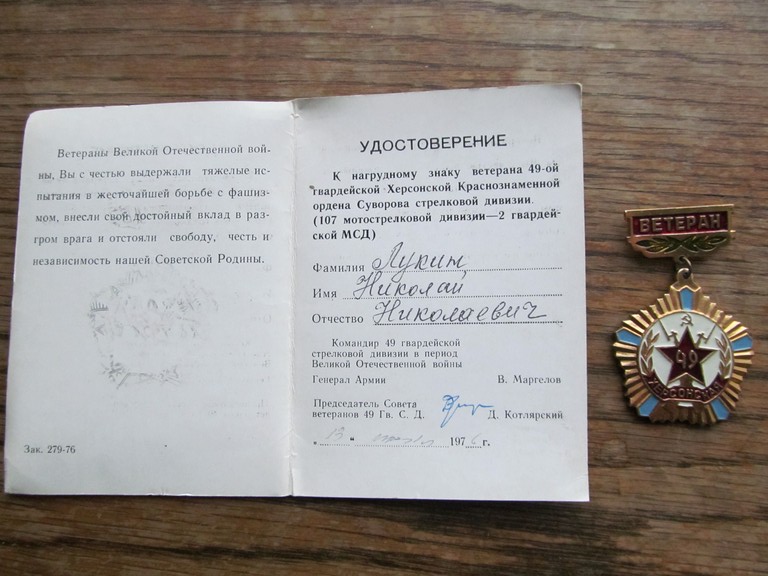 Ветераны Великой Отечественной вой-
ны, Вы с честью выдержали тяжелые ис-
пытания в жесточайшей борьбе с фашиз-
мом, внесли свой достойный вклад в раз-
гром врага и отстояли свободу, честь и
независимость нашей Советской Родины.
Зак. 279-76
УДОСТОВЕРЕНИЕ
К нагрудному знаку ветерана 49-ой
гвардейской Херсонской Краснознаменной
ордена Суворова стрелковой дивизии.
(107 мотострелковой дивизии—2 гвардей-
ской МСД)
Фамилия Лукин
Имя Николай
Отчество Николаевич
Командир 49 гвардейской
стрелковой дивизии в период
Великой Отечественной войны
Генерал Армии В. Маргелов
Председатель Совета
ветеранов 49 Гв. С. Д. Д. Котлярский
„13" 1976 г.
ВЕТЕРАН
49
ХЕРСОНСКАЯ